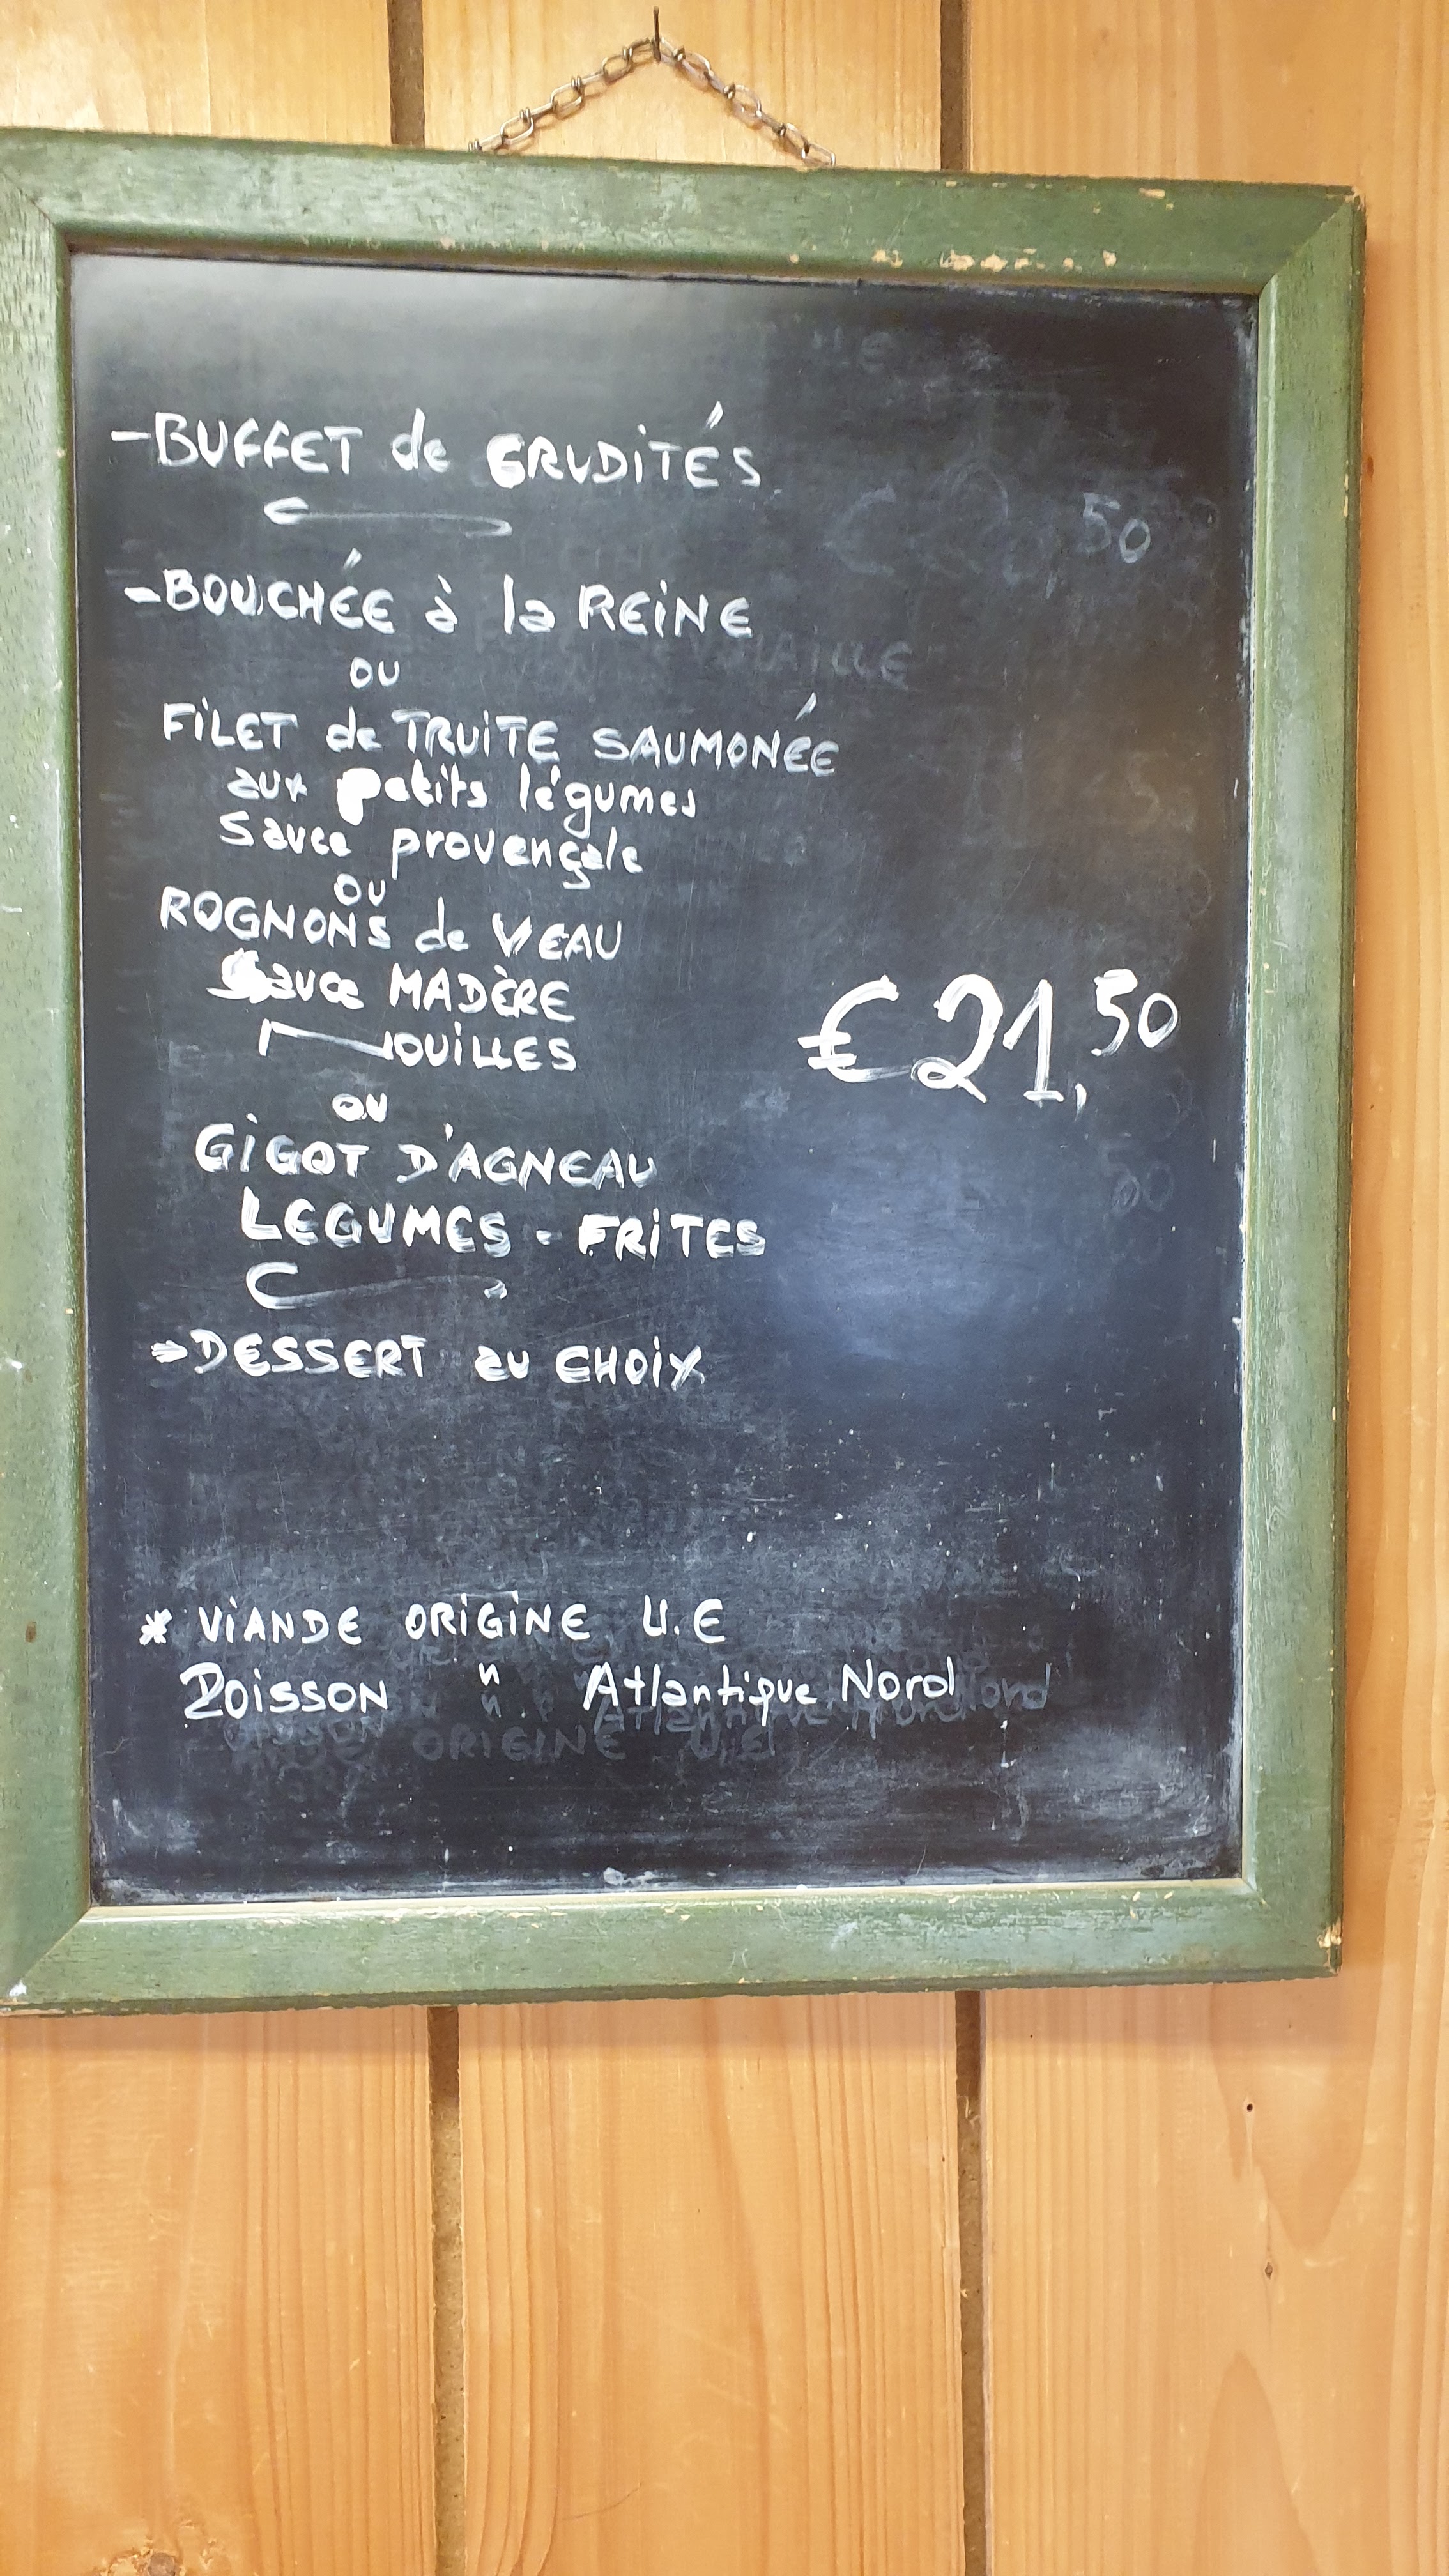 -BUFFET de CRUDITÉS
-BOUCHÉE à la REINE
OU
FILET de TRUITE SAUMONÉE
aux petits légumes
Sauce provençale
OU
ROGNONS de VEAU
Sauce MADÈRE
NOUILLES
€21,50
OU
GIGOT D'AGNEAU
LEGUMES - FRITES
-DESSERT au CHOIX
* VIANDE ORIGINE U.E
POISSON " Atlantique Nord